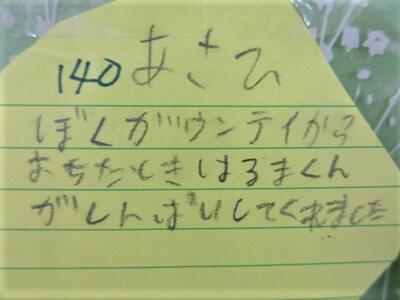 140 あさひ
ぼくがウンテイから
おちたときはるまくん
がしんぱいしてくれました